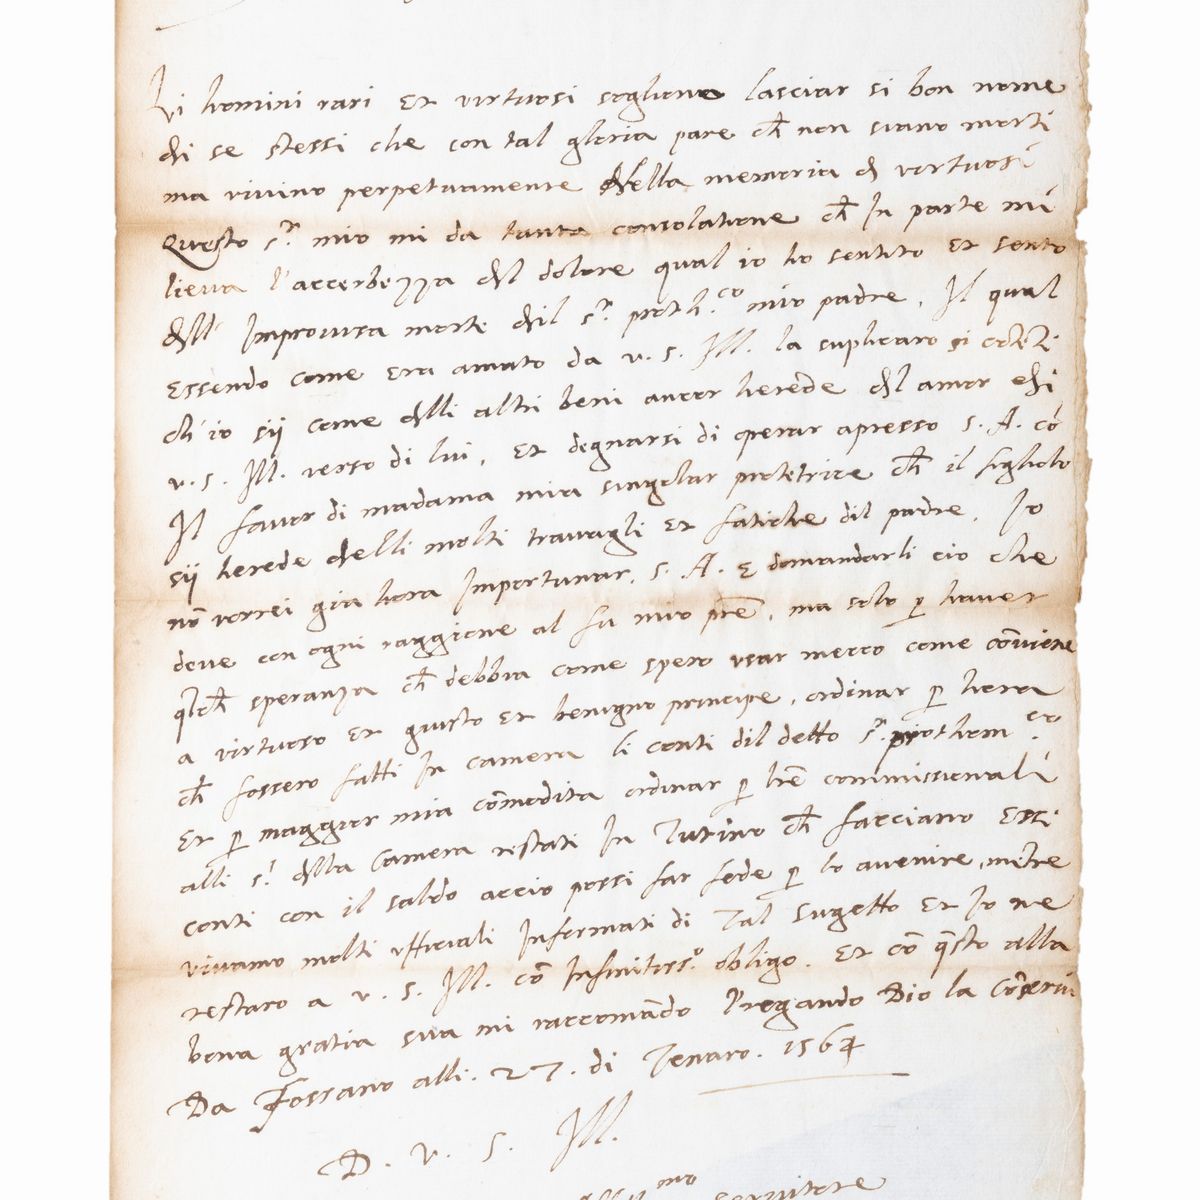 Li homini rari et virtuosi sogliono lasciar si bon nome
di se stessi che con tal gloria pare ch̄ non siano morti
ma vivino perpetuamente Nella memoria d vertuosi
Questo s.r mio mi da tanta consolatione ch̄ In parte mi
lieva l'accerbezza del dolore qual io ho sentito et sento
dell' Improvisa morte dil s.r proth.co mio padre. Il qual
essendo come era amato da v. s. Ill. la suplicaro si
ch' io sij come delli altri beni ancor herede del amor di
v. s. Ill. verso di lui, et degnarsi di operar apresso S. A. cō
Il favor di madama mia singolar protetrice ch̄ il figliolo
sij herede delli molti travagli et fatiche dil padre. Io
nō vorrei gia hora Importunar. S. A. e domandarli cio che
deve con ogni raggione al fu mio prē, ma solo p haver
qlch̄ speranza ch̄ debbia come spero usar mecco come cōviene
a virtuoso et giusto et benigno principe, ordinar p hora
ch̄ fossero fatti In camera li conti dil detto s.r prothom.co
Et p maggior mia cōmodita ordinar p lrē commissionali
alli s.ri della Camera restati In Turino ch̄ facciano essi
conti con il saldo accio possi far fede p lo avenire, mētre
vivano molti ufficiali Informati di Tal sugetto et Io ne
restaro a v. s. Ill. cō Infinitiss.o obligo. Et cō qsto alla
bona gratia sua mi raccomādo Pregando Dio la Cōservi
Da Fossano alli. 27. di Jenaro. 1564
D. v. s. Ill.
servitore